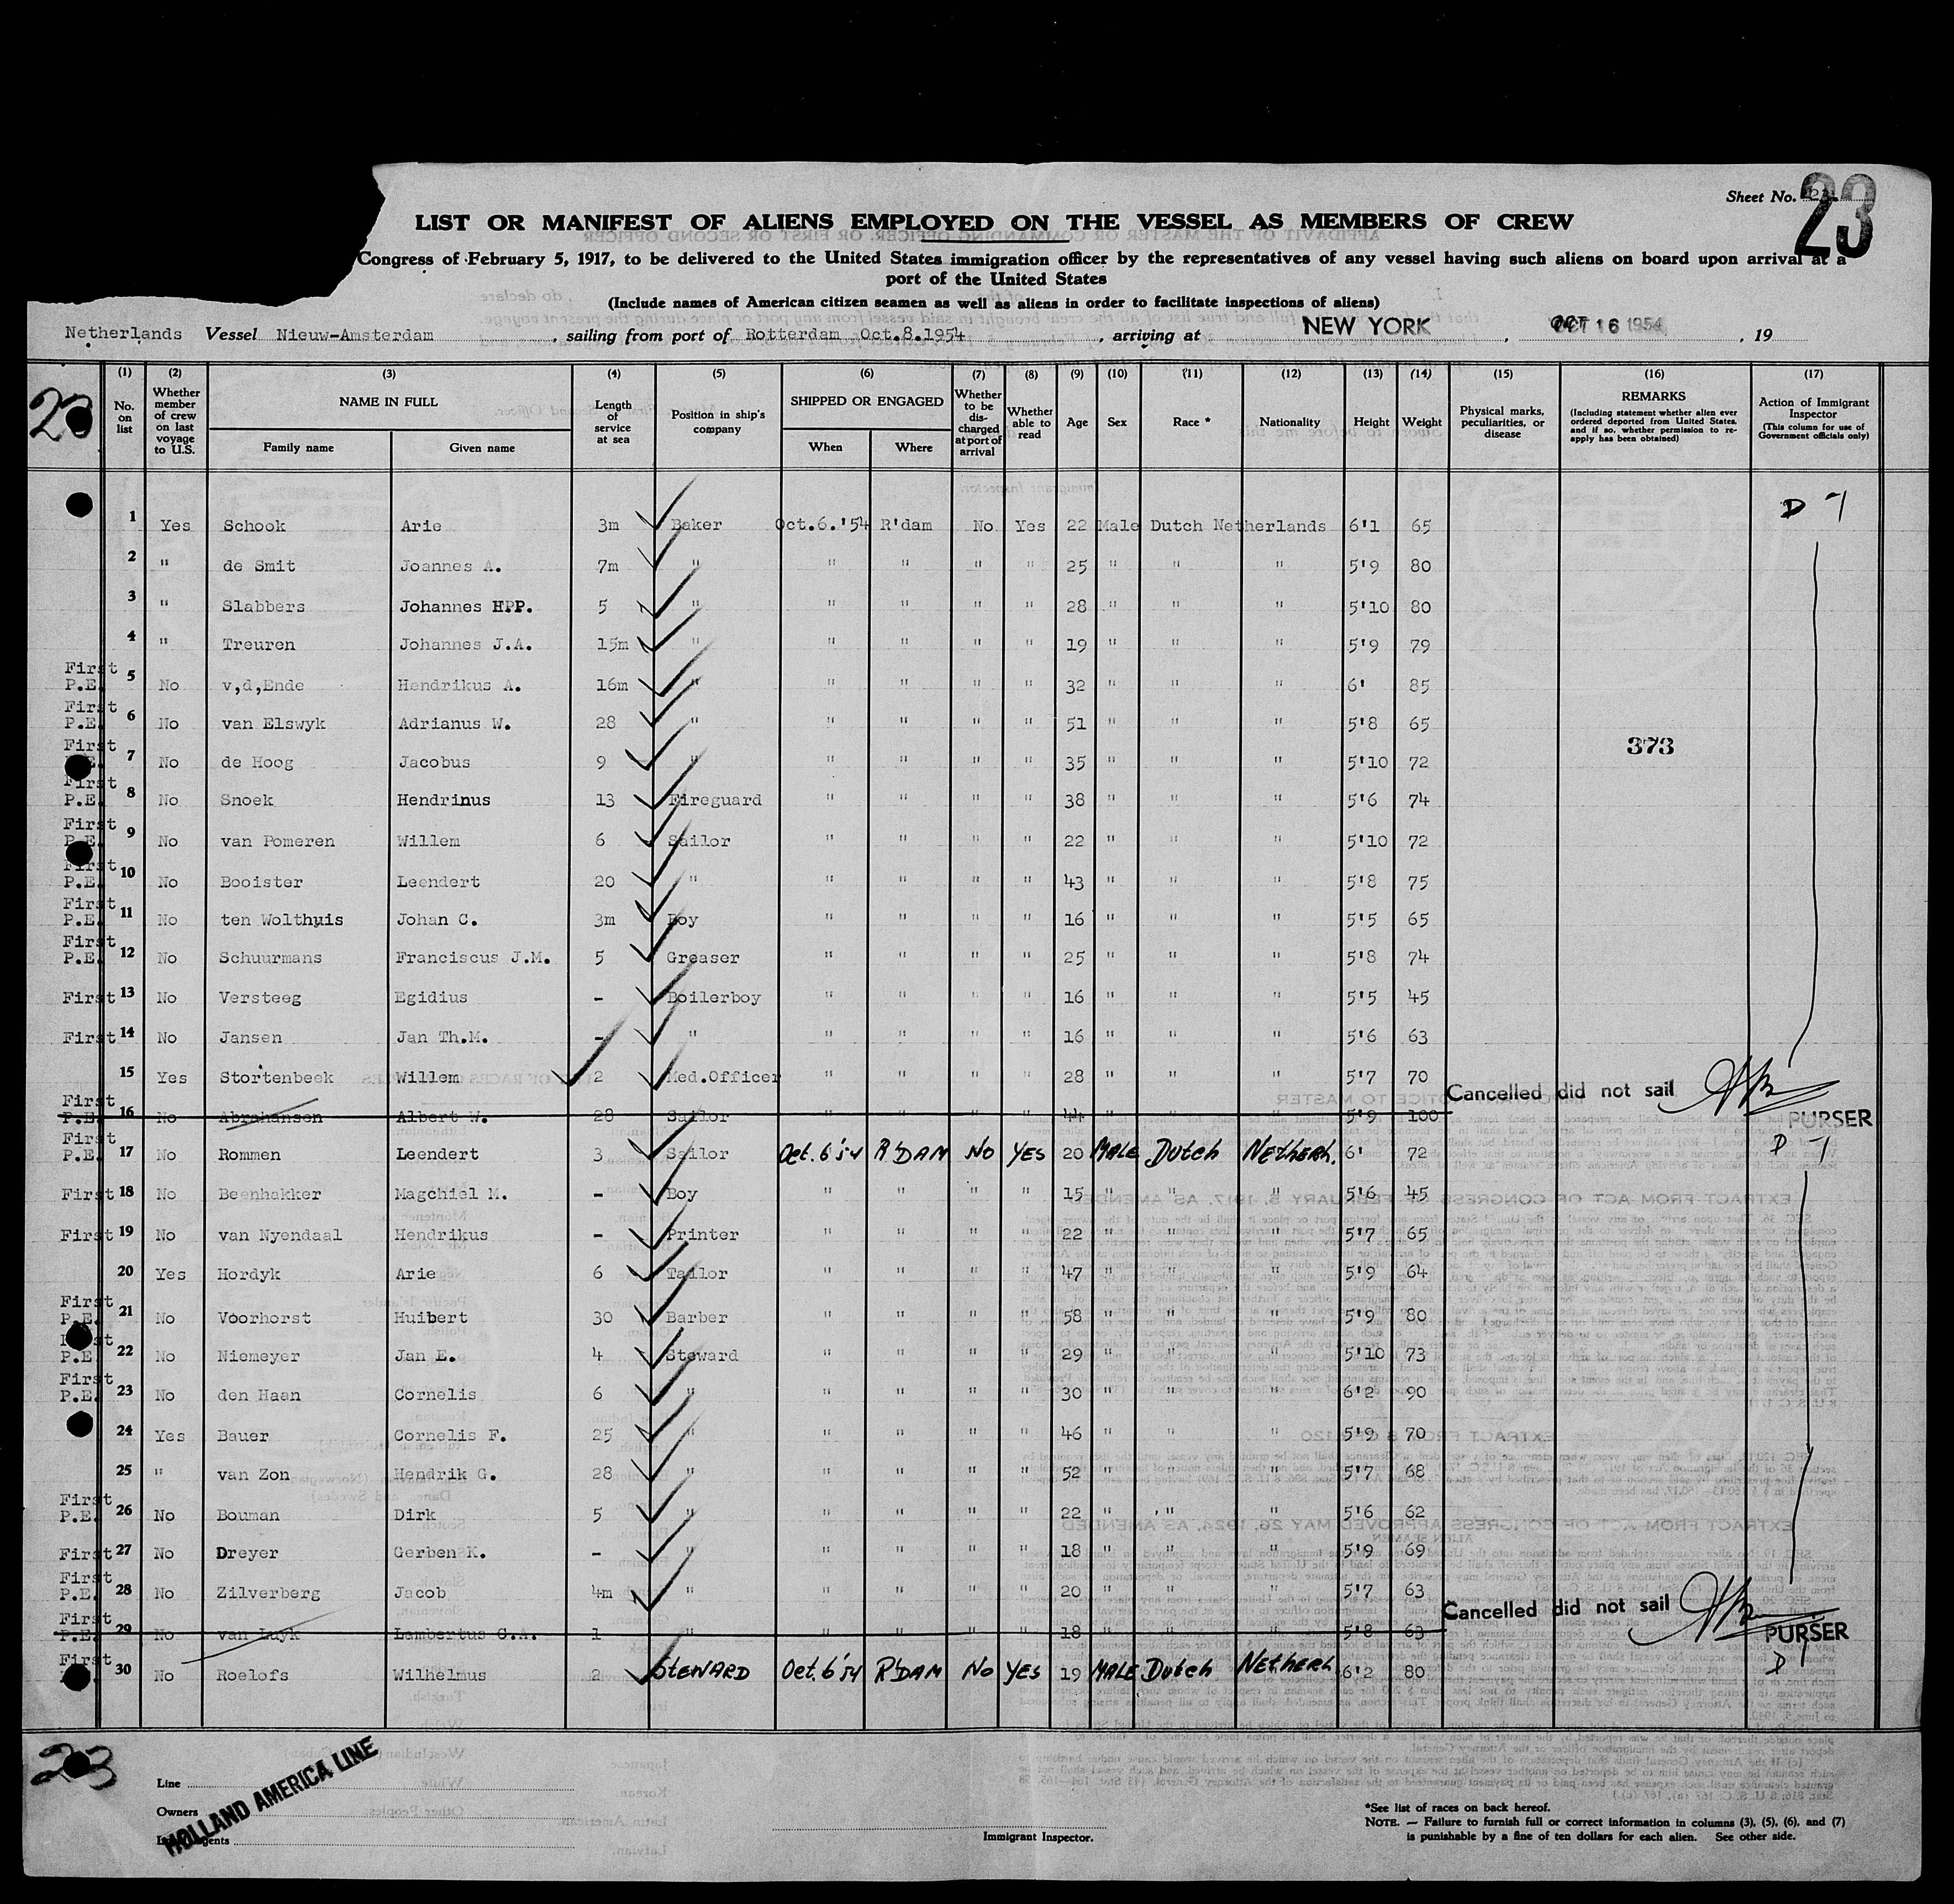 Sheet No. 23
23
LIST OR MANIFEST OF ALIENS EMPLOYED ON THE VESSEL AS MEMBERS OF CREW
Congress of February 5, 1917, to be delivered to the United States immigration officer by the representatives of any vessel having such aliens on board upon arrival at a
port of the United States
(Include names of American citizen seamen as well as aliens in order to facilitate inspections of aliens)
Netherlands Vessel Nieuw-Amsterdam, sailing from port of Rotterdam Oct.8.1954, arriving at NEW YORK, OCT 16 1954, 19
(1) No. on list
(2) Whether member of crew on last voyage to U.S.
(3) NAME IN FULL Family name Given name
(4) Length of service at sea
(5) Position in ship's company
(6) SHIPPED OR ENGAGED When Where
(7) Whether to be discharged at port of arrival
(8) Whether able to read
(9) Age
(10) Sex
(11) Race *
(12) Nationality
(13) Height
(14) Weight
(15) Physical marks, peculiarities, or disease
(16) REMARKS (Including statement whether alien ever ordered deported from United States, and if so, whether permission to re-apply has been obtained)
(17) Action of Immigrant Inspector (This column for use of Government officials only)
1 Yes Schook Arie 3m Baker Oct.6.'54 R'dam No Yes 22 Male Dutch Netherlands 6'1 65 D -1
2 " de Smit Joannes A. 7m " " " " " 25 " " " 5'9 80
3 " Slabbers Johannes H.P. 5 " " " " " 28 " " " 5'10 80
4 " Treuren Johannes J.A. 15m " " " " " 19 " " " 5'9 79
First P.E. 5 No v,d,Ende Hendrikus A. 16m " " " " " 32 " " " 6' 85
First P.E. 6 No van Elswyk Adrianus W. 28 " " " " " 51 " " " 5'8 65
373
First 7 No de Hoog Jacobus 9 " " " " " 35 " " " 5'10 72
First P.E. 8 No Snoek Hendrinus 13 Fireguard " " " " 38 " " " 5'6 74
First P.E. 9 No van Pomeren Willem 6 Sailor " " " " 22 " " " 5'10 72
First P.E. 10 No Booister Leendert 20 " " " " " 43 " " " 5'8 75
First P.E. 11 No ten Wolthuis Johan C. 3m Boy " " " " 16 " " " 5'5 65
First P.E. 12 No Schuurmans Franciscus J.M. 5 Greaser " " " " 25 " " " 5'8 74
First 13 No Versteeg Egidius - Boilerboy " " " " 16 " " " 5'5 45
First 14 No Jansen Jan Th.M. - " " " " " 16 " " " 5'6 63
15 Yes Stortenbeek Willem 2 Med.Officer " " " " 28 " " " 5'7 70
Cancelled did not sail
PURSER
First P.E. 16 No Abrahansen Albert W. 28 Sailor " " " " 44 " " " 5'9 100
First P.E. 17 No Rommen Leendert 3 Sailor Oct. 6'54 R'DAM No YES 20 MALE Dutch NETHERL. 6' 72 D -1
First 18 No Beenhakker Magchiel M. - Boy " " " " 15 " " " 5'6 45
First 19 No van Nyendaal Hendrikus - Printer " " " " 22 " " " 5'7 65
20 Yes Hordyk Arie 6 Tailor " " " " 47 " " " 5'9 64
First P.E. 21 No Voorhorst Huibert 30 Barber " " " " 58 " " " 5'9 80
First P.E. 22 No Niemeyer Jan E. 4 Steward " " " " 29 " " " 5'10 73
First P.E. 23 No den Haan Cornelis 6 " " " " " 30 " " " 6'2 90
24 Yes Bauer Cornelis F. 25 " " " " " 46 " " " 5'9 70
25 " van Zon Hendrik G. 28 " " " " " 52 " " " 5'7 68
First P.E. 26 No Bouman Dirk 5 " " " " " 22 " " " 5'6 62
First 27 No Dreyer Gerben K. - " " " " " 18 " " " 5'9 69
First P.E. 28 No Zilverberg Jacob 4m " " " " " 20 " " " 5'7 63
Cancelled did not sail
PURSER
First P.E. 29 No van Luyk Lambertus C.A. 1 " " " " " 18 " " " 5'8 63
First 30 No Roelofs Wilhelmus 2 STEWARD Oct. 6'54 R'DAM No YES 19 MALE Dutch NETHERL 6'2 80 D 1
23
Line
HOLLAND AMERICA LINE
Owners
Immigrant Inspector.
*See list of races on back hereof.
NOTE. — Failure to furnish full or correct information in columns (3), (5), (6), and (7)
is punishable by a fine of ten dollars for each alien. See other side.